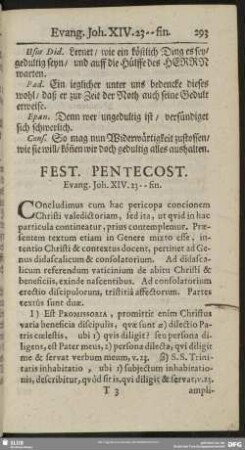 Evang. Joh. XIV. 23--fin. 293
Usus Did. Lernet/ wie ein köstlich Ding es sey/
gedultig seyn/ und auff die Hülffe des HERRN
warten.
Pad. Ein ieglicher unter uns bedencke dieses
wohl/ daß er zur Zeit der Noth auch seine Gedult
erweise.
Epan. Denn wer ungedultig ist/ versündiget
sich schwerlich.
Cons. So mag nun Widerwärtigkeit zustossen/
wie sie will/ können wir doch gedultig alles aushalten.
FEST. PENTECOST.
Evang. Joh. XIV. 23--fin.
COncludimus cum hac pericopa concionem
Christi valedictoriam, sed ita, ut qvid in hac
particula contineatur, prius contemplemur. Præ-
sentem textum etiam in Genere mixto esse, in-
tentio Christi & contextus docent, pertinet ad Ge-
nus didascalicum & consolatorium. Ad didasca-
licum referendum vaticinium de abitu Christi &
beneficiis, exinde nascentibus. Ad consolatorium
erectio discipulorum, tristitiâ affectorum. Partes
textûs sunt duæ.
1) Est Promissoria, promittit enim Christus
varia beneficia discipulis, qvæ sunt α) dilectio Pa-
tris cœlestis, ubi 1) qvis diligit? seu persona di-
ligens, est Pater meus, 2) persona dilecta, qvi diligit
me & servat verbum meum, v. 23. β) S.S. Trini-
tatis inhabitatio, ubi 1) subjectum inhabitatio-
nis, describitur, qvòd sit is, qvi diligit & servat, v. 23.
T 3 ampli-
SLUB